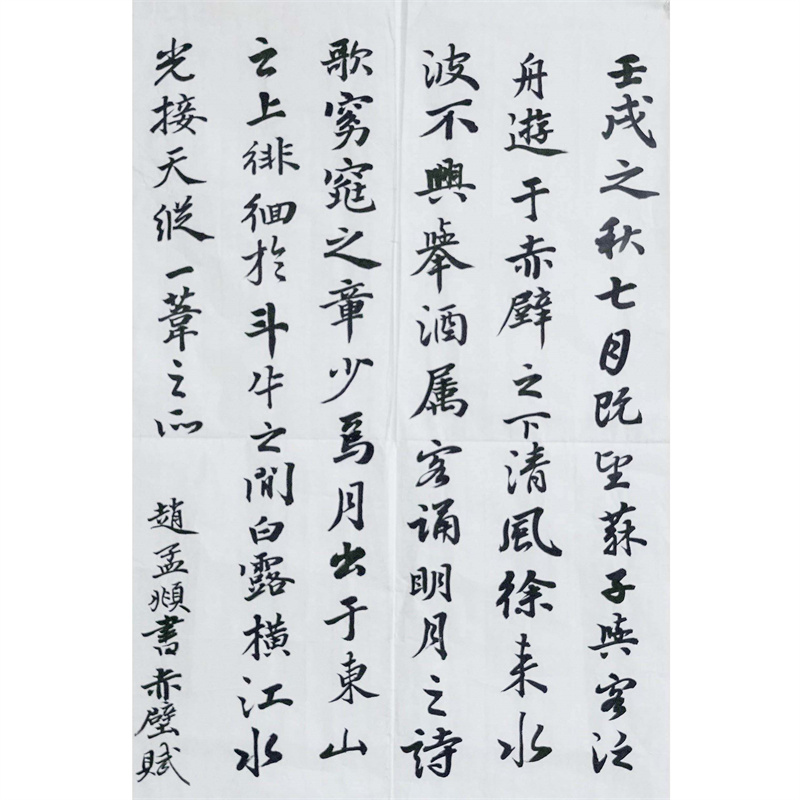 壬戌之秋七月既望蘇子與客泛
舟遊于赤壁之下清風徐来水
波不興舉酒属客誦明月之詩
歌窈窕之章少焉月出于東山
之上徘徊於斗牛之間白露横江水
光接天縦一葦之所
趙孟頫書赤壁賦